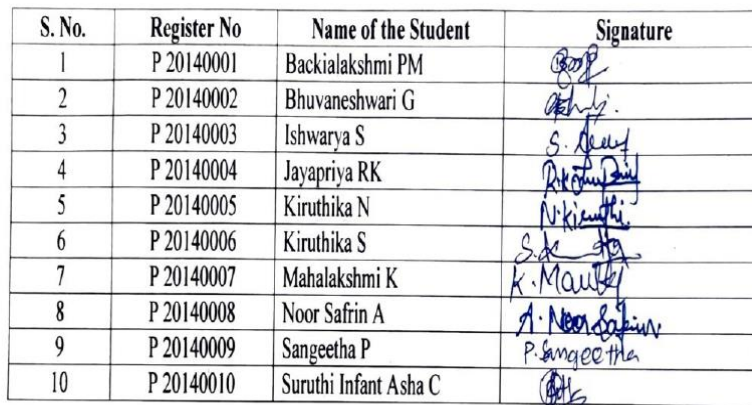 S. No. Register No Name of the Student Signature
1 P 20140001 Backialakshmi PM
2 P 20140002 Bhuvaneshwari G
3 P 20140003 Ishwarya S S.
4 P 20140004 Jayapriya RK
5 P 20140005 Kiruthika N N.kiruthi
6 P 20140006 Kiruthika S
7 P 20140007 Mahalakshmi K
8 P 20140008 Noor Safrin A A. Noor Safrin
9 P 20140009 Sangeetha P P. Sangeetha
10 P 20140010 Suruthi Infant Asha C